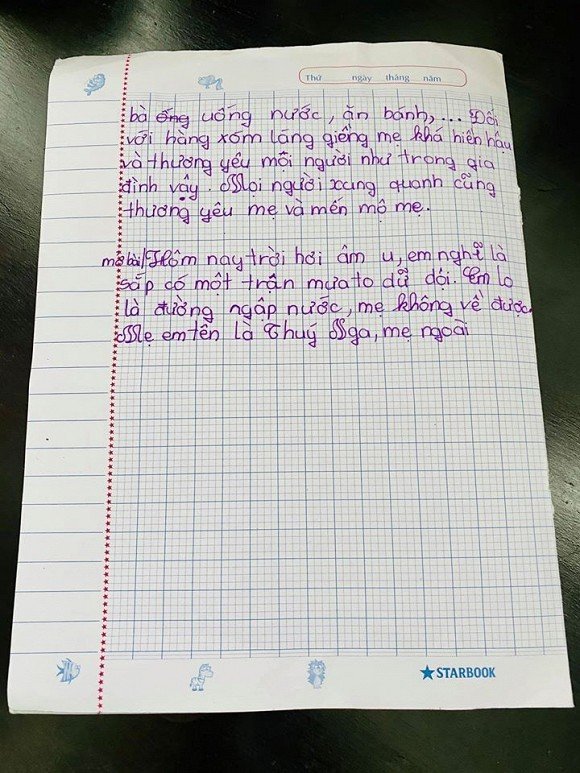 Thứ ngày tháng năm
bà ống uống nước, ăn bánh,... Đối
với hàng xóm láng giềng mẹ khá hiền hậu
và thương yêu mội người như trong gia
đình vậy. Mọi người xung quanh cũng
thương yêu mẹ và mến mộ mẹ.
mở bài/Hôm nay trời hơi âm u, em nghĩ là
sắp có một trận mưa to dữ dội. Em lo
là đường ngập nước, mẹ không về được
Mẹ em tên là Thuý Nga, mẹ ngoài
STARBOOK